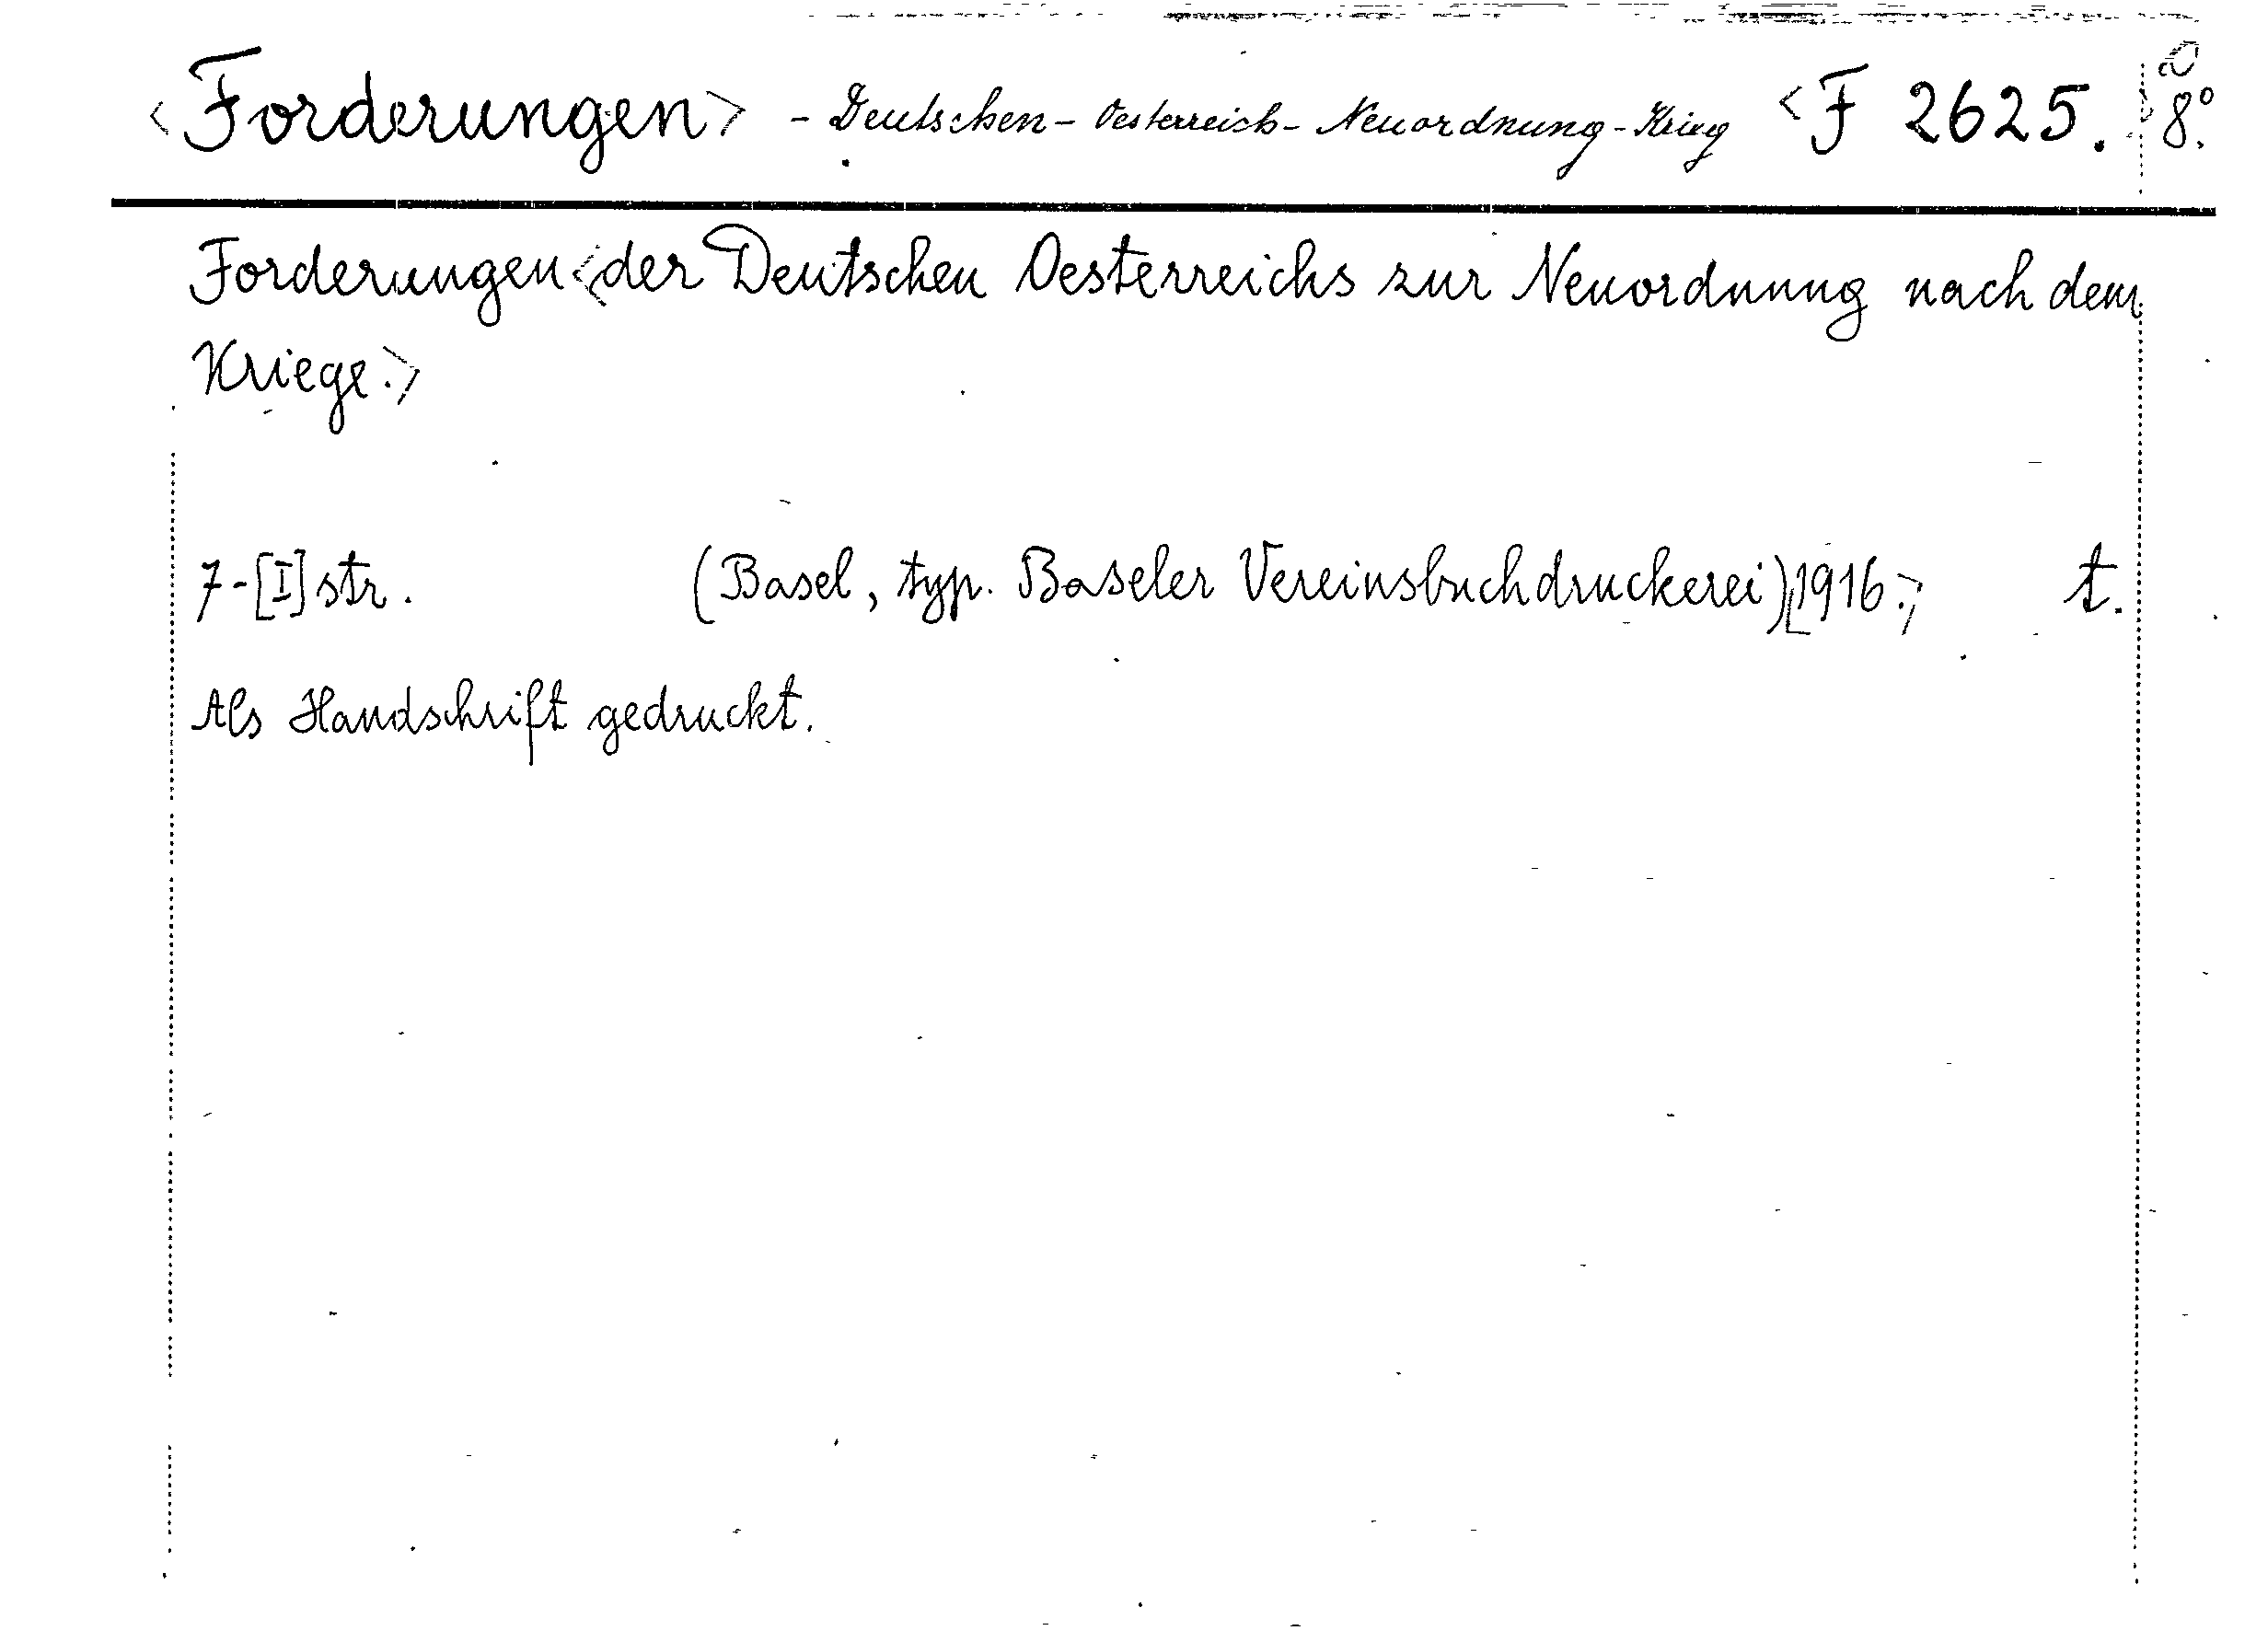 <Forderungen> - Deutschen - Oesterreich - Neuordnung - Krieg <F 2625.> 8°.
Forderungen <der Deutschen Oesterreichs zur Neuordnung nach dem
Kriege.>
7-[I] str. (Basel, typ. Baseler Vereinsbuchdruckerei) [1916.> t.
Als Handschrift gedruckt.